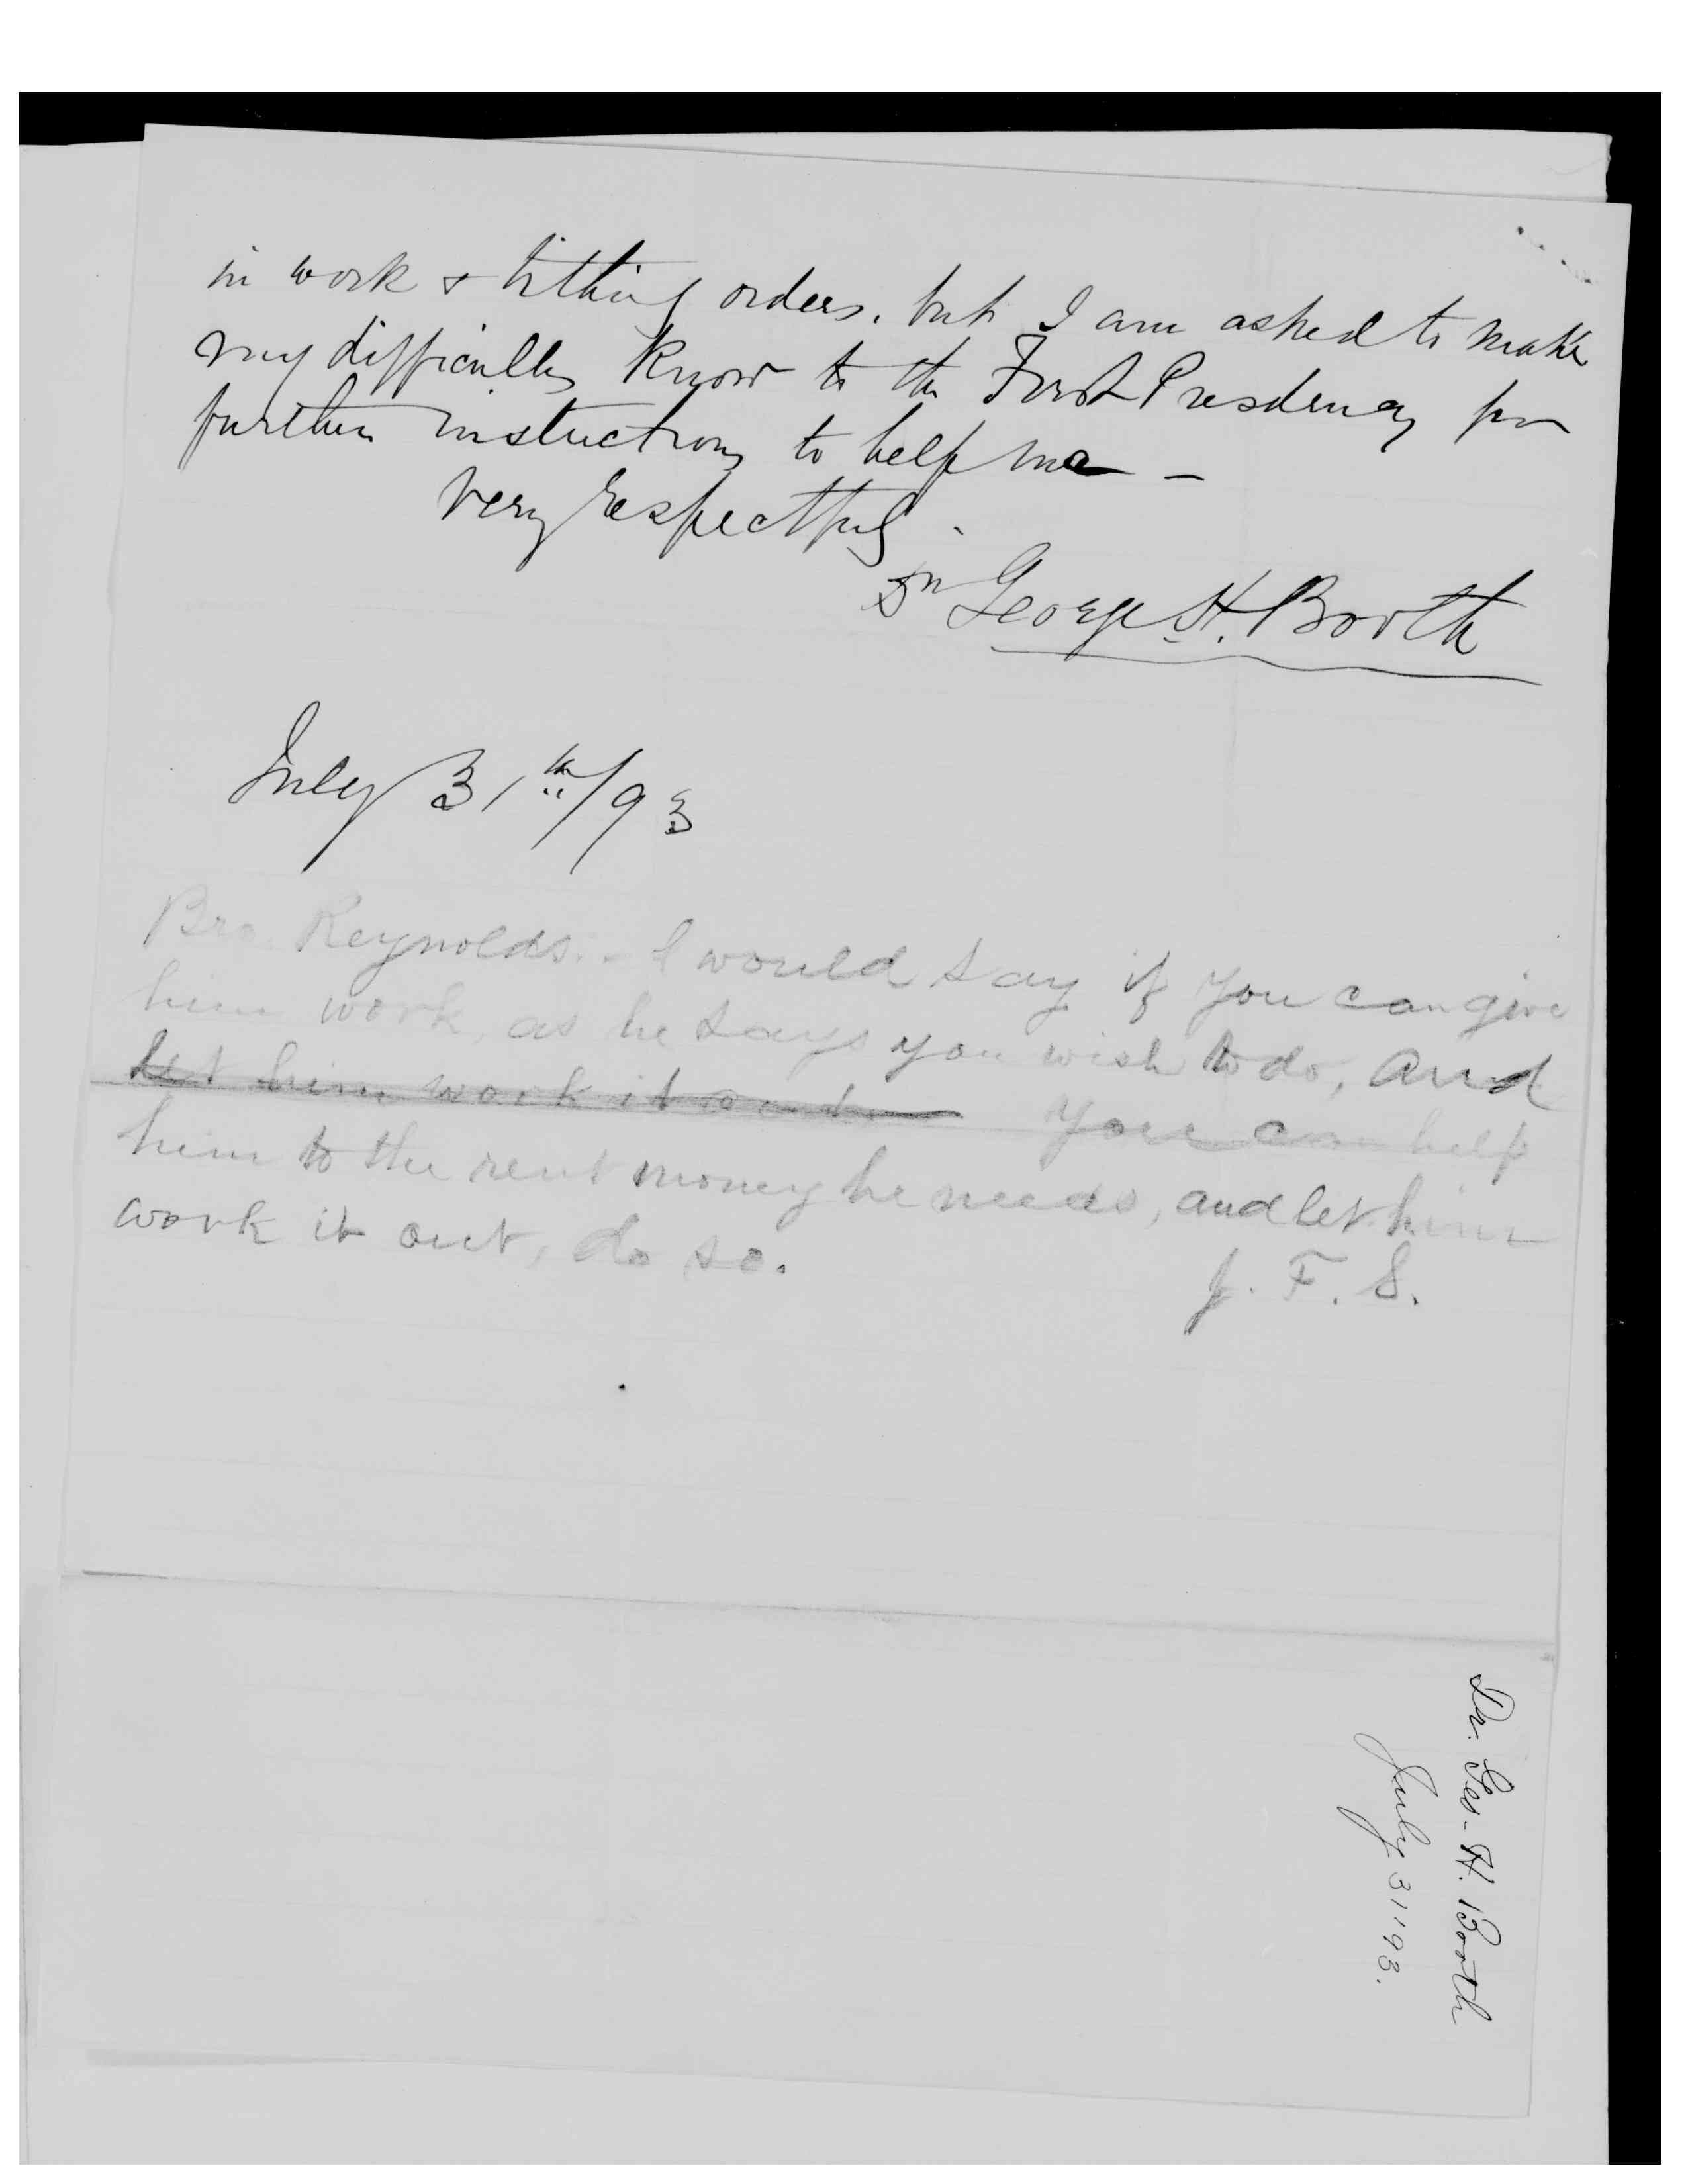 in work & tithing orders. but I am asked to make
my difficultys know to the First Presdency for
further instructions to help me —
Very respectfuly
Dr George H. Booth
July 31th/93
Bro. Reynolds. - I would say if you can give
him work, as he says you wish to do, and
let him work it out you can help
him to the rent money he needs, and let him
work it out, do so.
J. F. S.
Dr. Geo. H. Booth
July 31 '93.